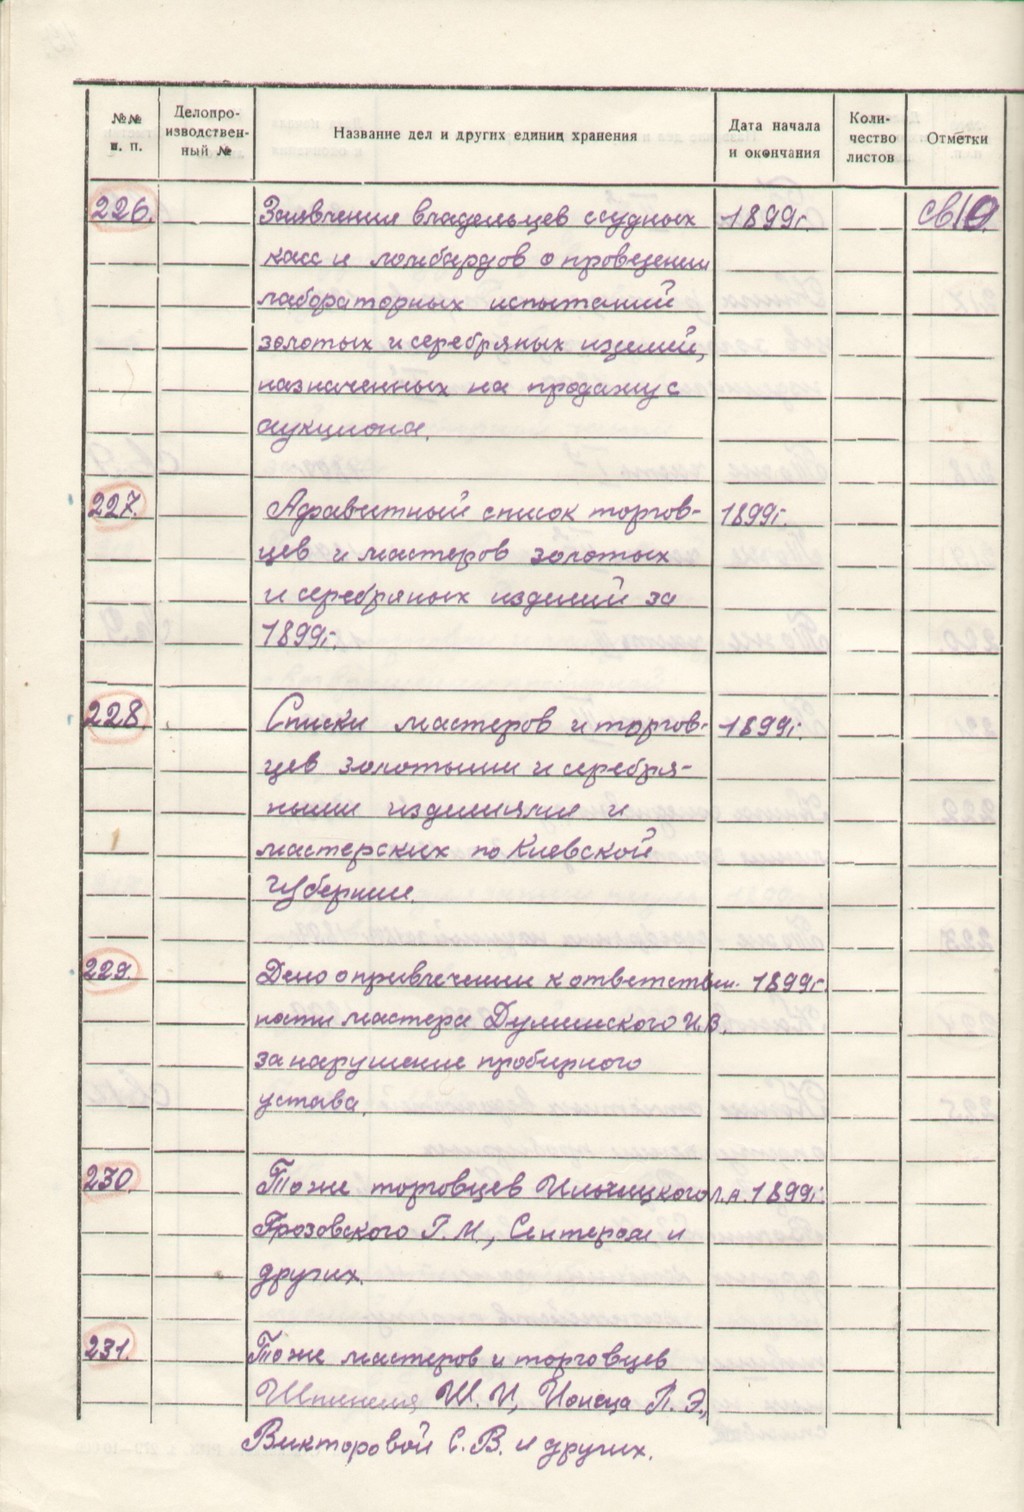 №№ п. п.
Делопроизводствен-ный №
Название дел и других единиц хранения
Дата начала и окончания
Коли-чество листов
Отметки
226. Заявления владельцев ссудных 1899г. св 10.
касс и ломбардов о проведении
лабораторных испытаний
золотых и серебряных изделий,
назначенных на продажу с
аукциона.
227. Алфавитный список торгов- 1899г.
цев и мастеров золотых
и серебряных изделий за
1899г.
228. Списки мастеров и торгов- 1899г.
цев золотыми и серебря-
ными изделиями и
мастерских по Киевской
губернии.
229. Дело о привлечении к ответствен- 1899г.
ности мастера Думинского И.В.
за нарушение пробирного
устава.
230. То же торговцев Ильницкого Л.А. 1899г.
Грозовского Г.М., и
других.
231. То же мастеров и торговцев
Ш. И., Ионеца П. Э.,
Викторовой С. В. и других.